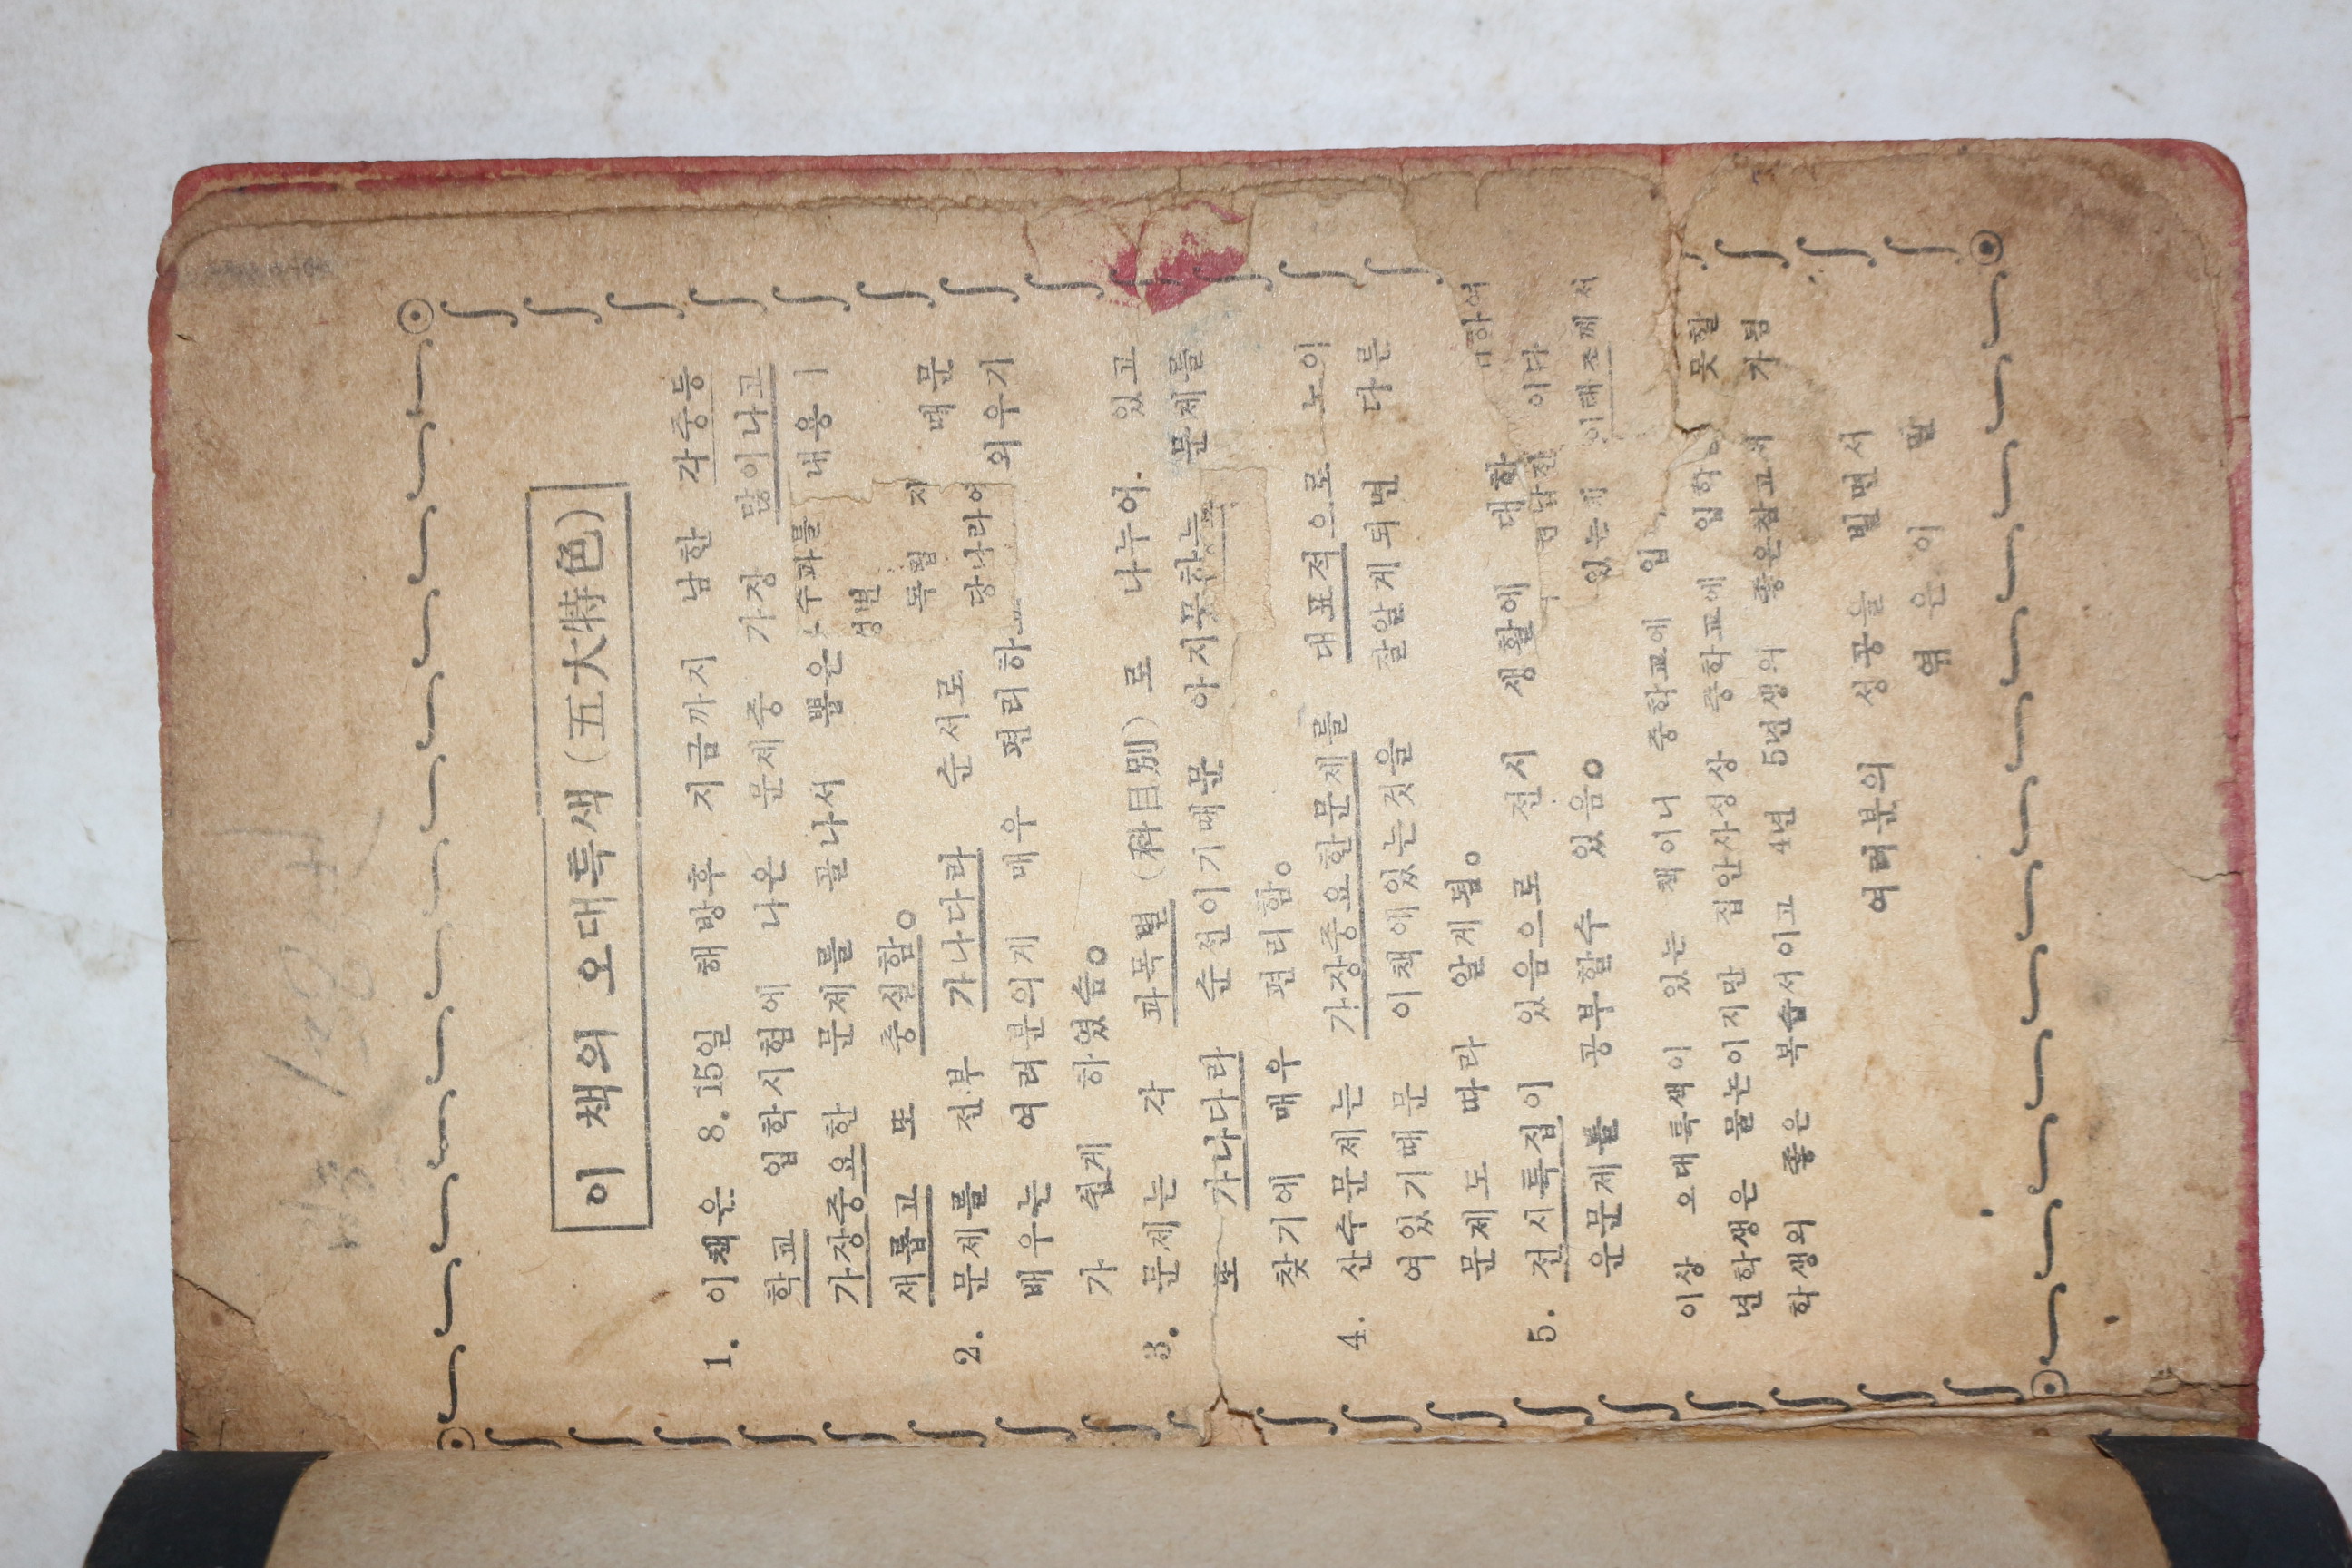 이 책의 오대특색 (五大特色)
1. 이책은 8.15일 해방후 지금까지 남한 각중등
학교 입학시험에 나온 문제중 가장 많이나고
가장중요한 문제를 골나서 뽑은 수과를 내용
새롭고 또 충실함。
2. 문제를 전부 가나다라 순서로 때문
배우는 여러분의게 매우 편리하 외우기
가 쉽게 하였슴。
3. 문제는 각 과목별 (科目別) 로 나누어. 있고
또 가나다라 순선이기때문 아지못하는 문제를
찾기에 매우 편리함。
4. 산수문제는 가장중요한문제를 대표적으로 노이
여있기때문 이책에있는것을 잘알게되면 다른
문제도 따라 알게됨。
5. 전시특집이 있음으로 전시 생활에 대한
운문제를 공부할수 있음。
이상 오대특색이 있는 책이니 중학교에 입
년학생은 물논이지만 집안사정상 중학교에 입학 못할
학생의 좋은 복습서이고 4년 5년생의 좋은참고서 가됨
여러분의 성공을 빌면서
엮은이 말